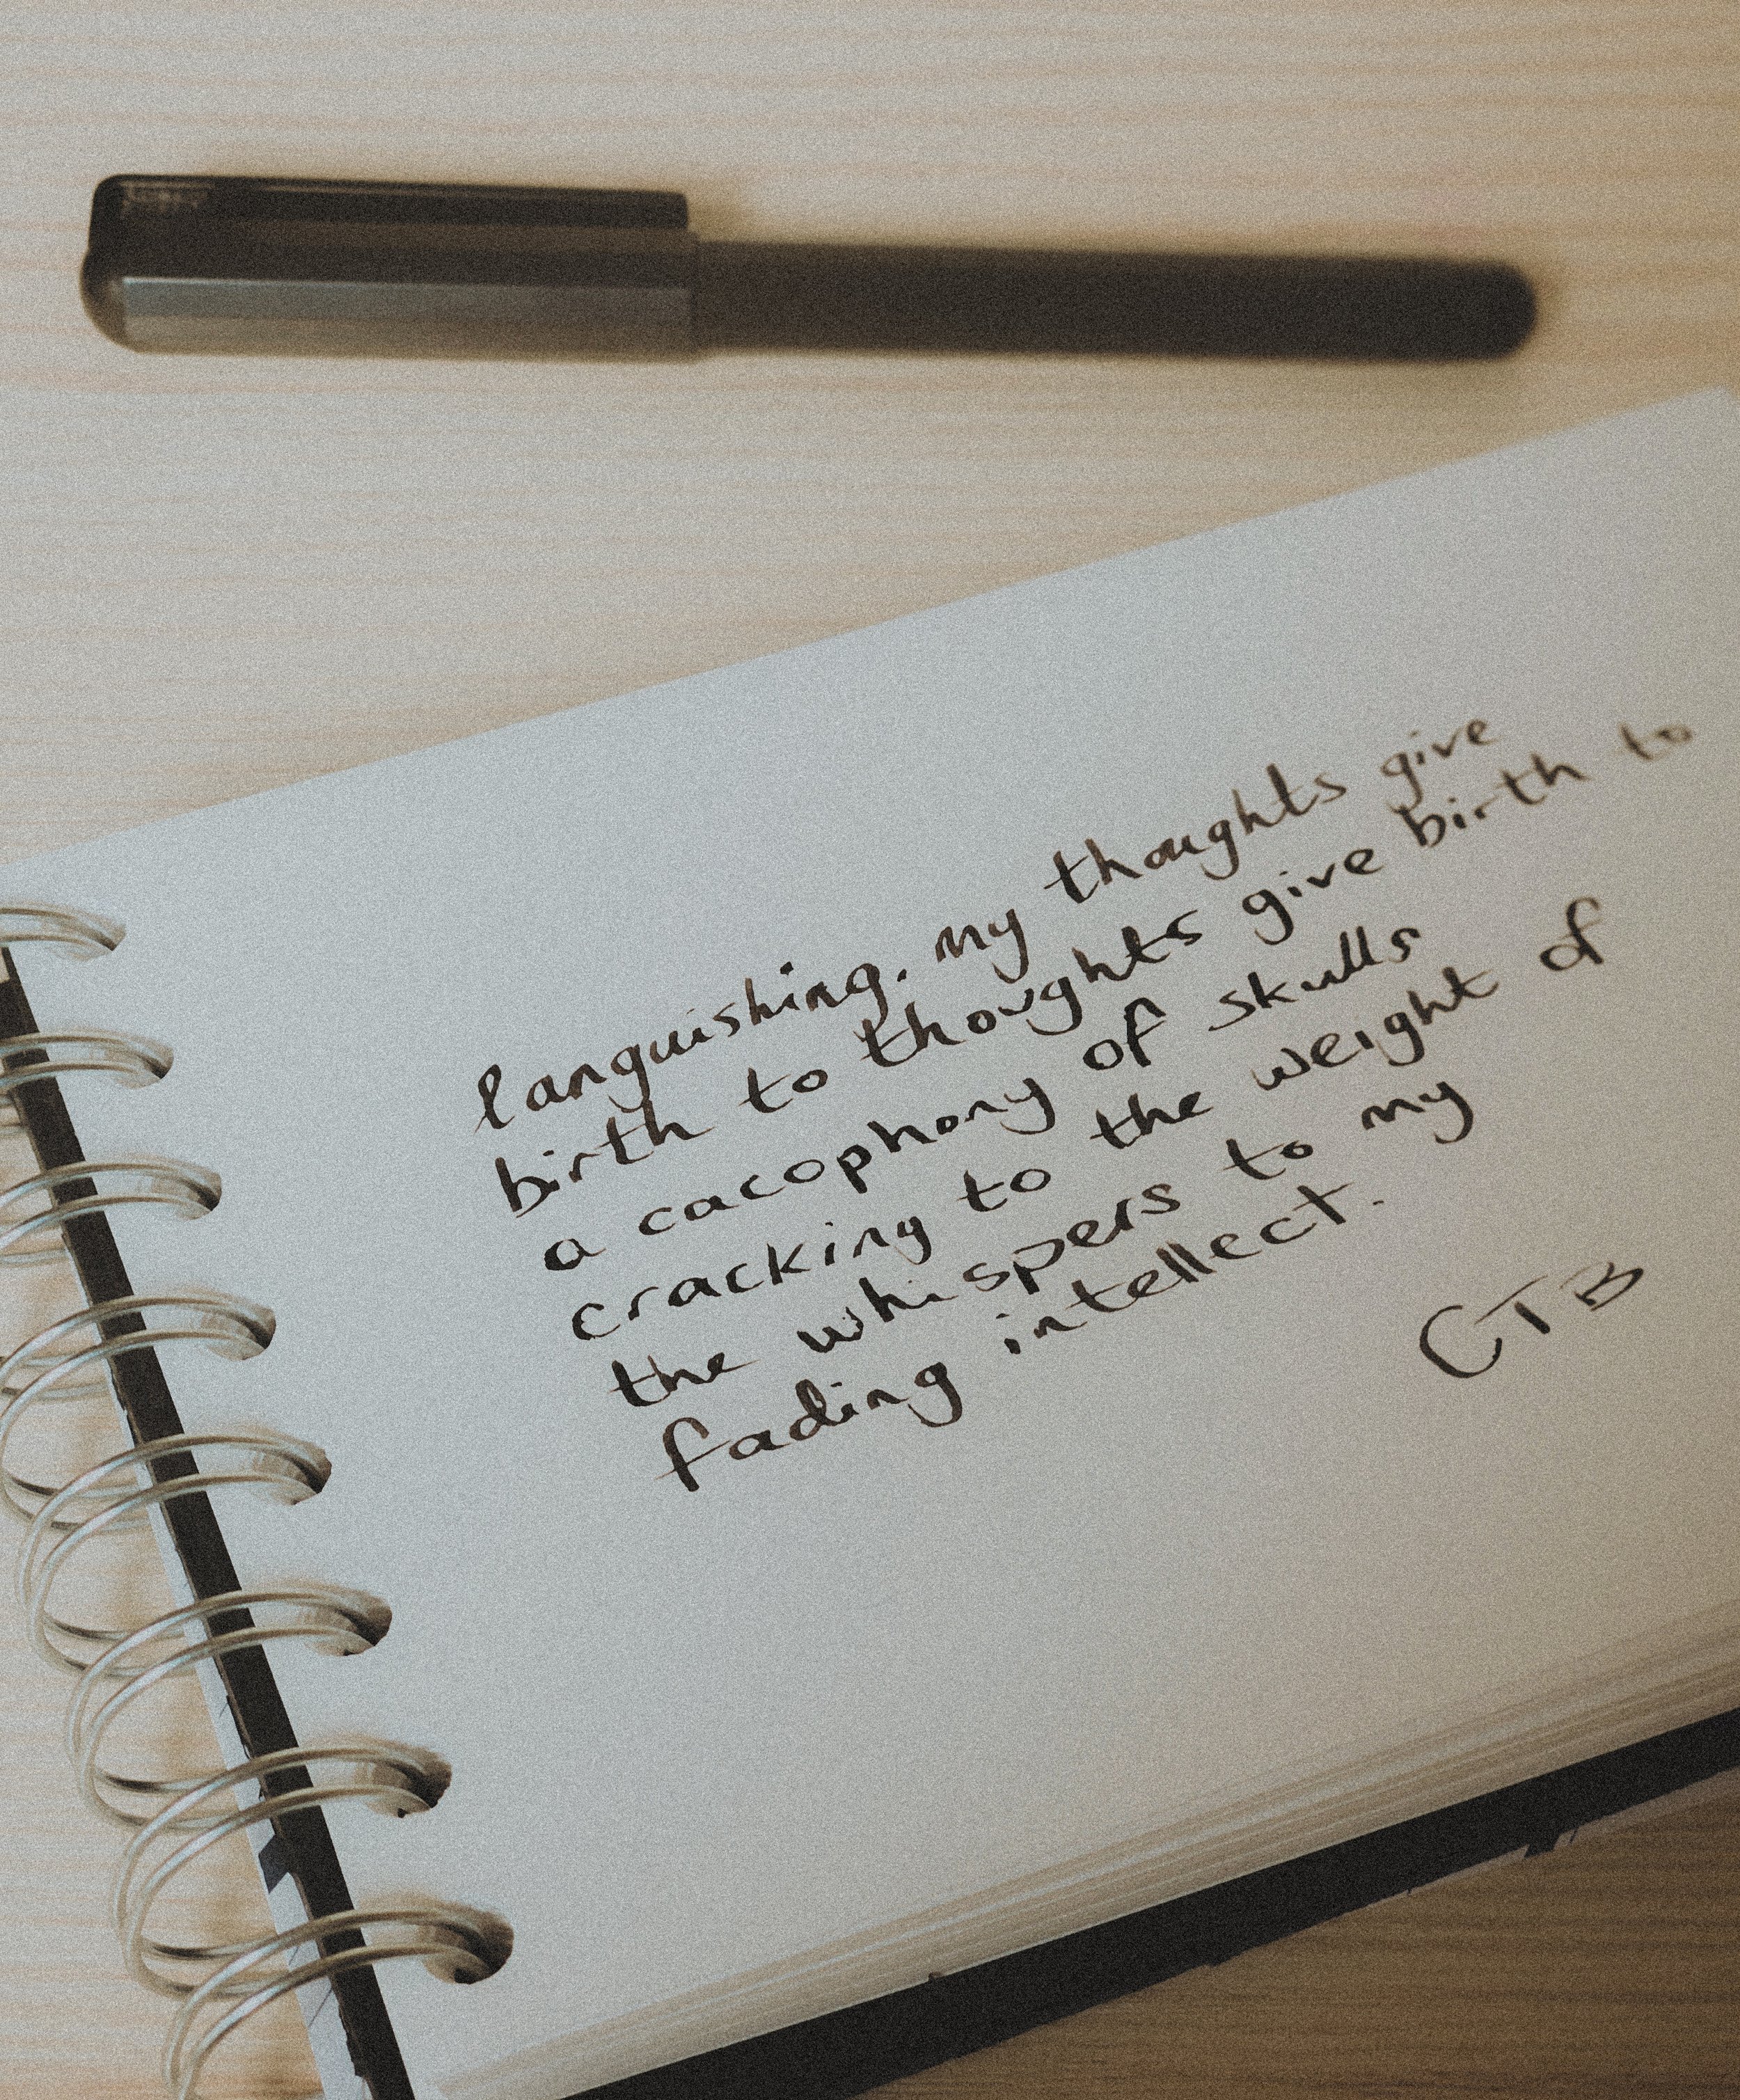 languishing. my thoughts give
birth to thoughts give birth to
a cacophony of skulls
cracking to the weight of
the whispers to my
fading intellect.
CTB